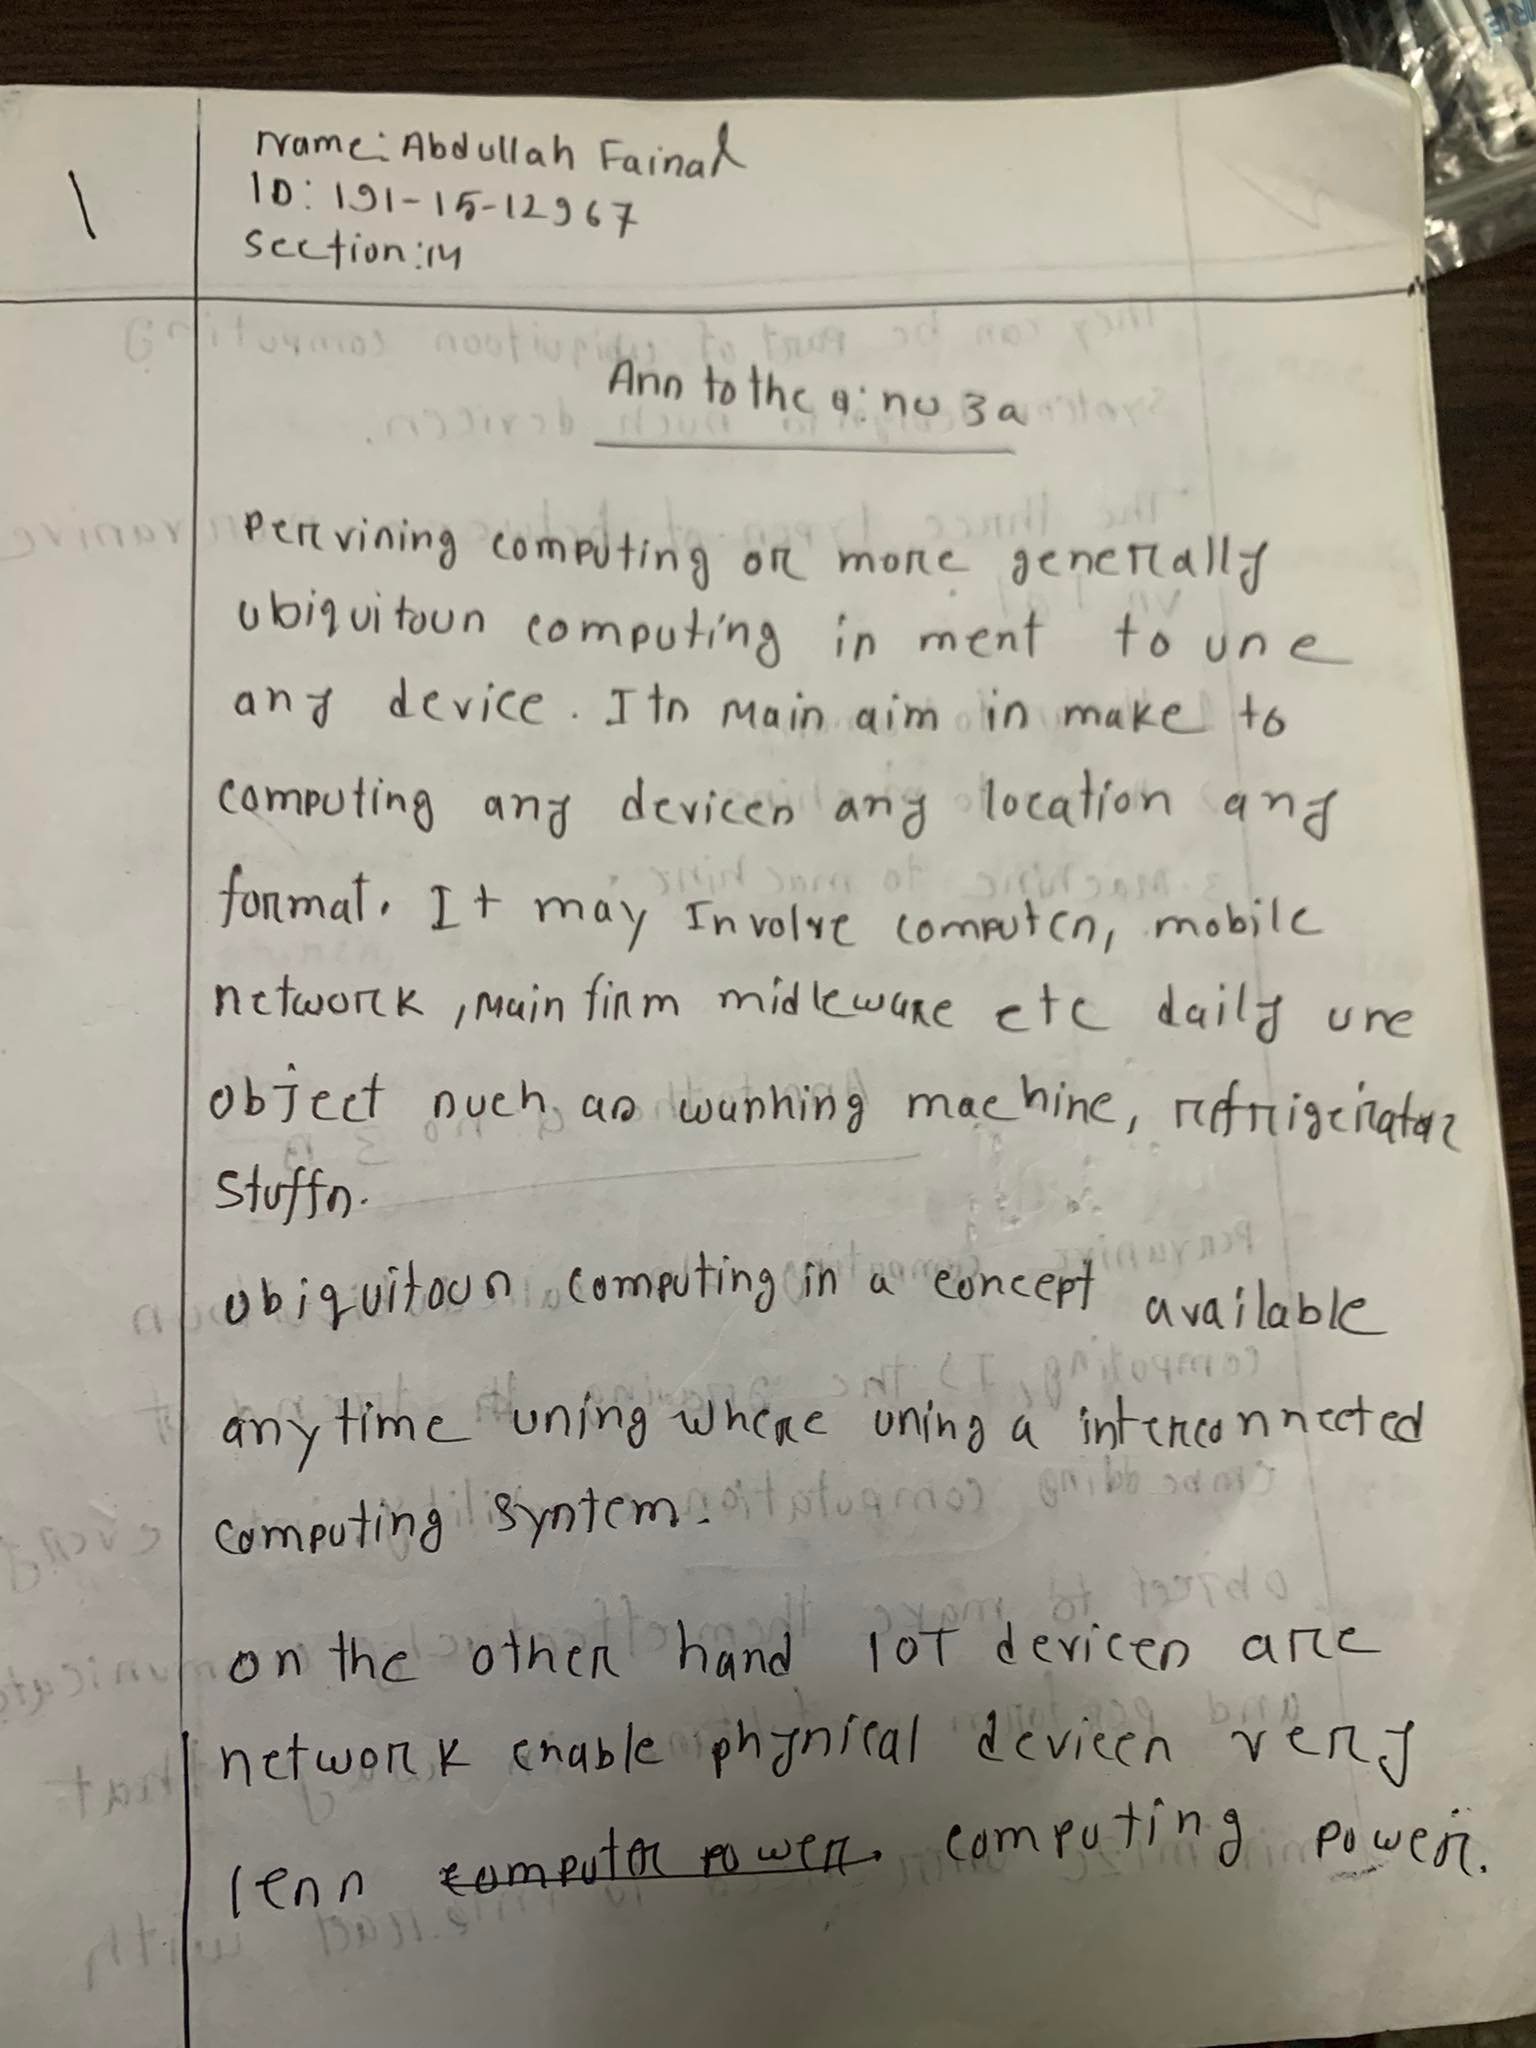 1
Name: Abdullah Faisal
ID: 191-15-12967
Section: M
Ans to the q: no 3a
Pervising computing or more generally
ubiquitous computing is ment to use
any device. Its main aim is make to
computing any devices any location any
format. It may Involve computes, mobile
network, main firm midleware etc daily use
object such as washing machine, refrigerator
stuffs.
ubiquitous computing is a concept available
anytime using where using a interconnected
computing system.
on the other hand IOT devices are
network enable physical devices very
less computer power. computing power.